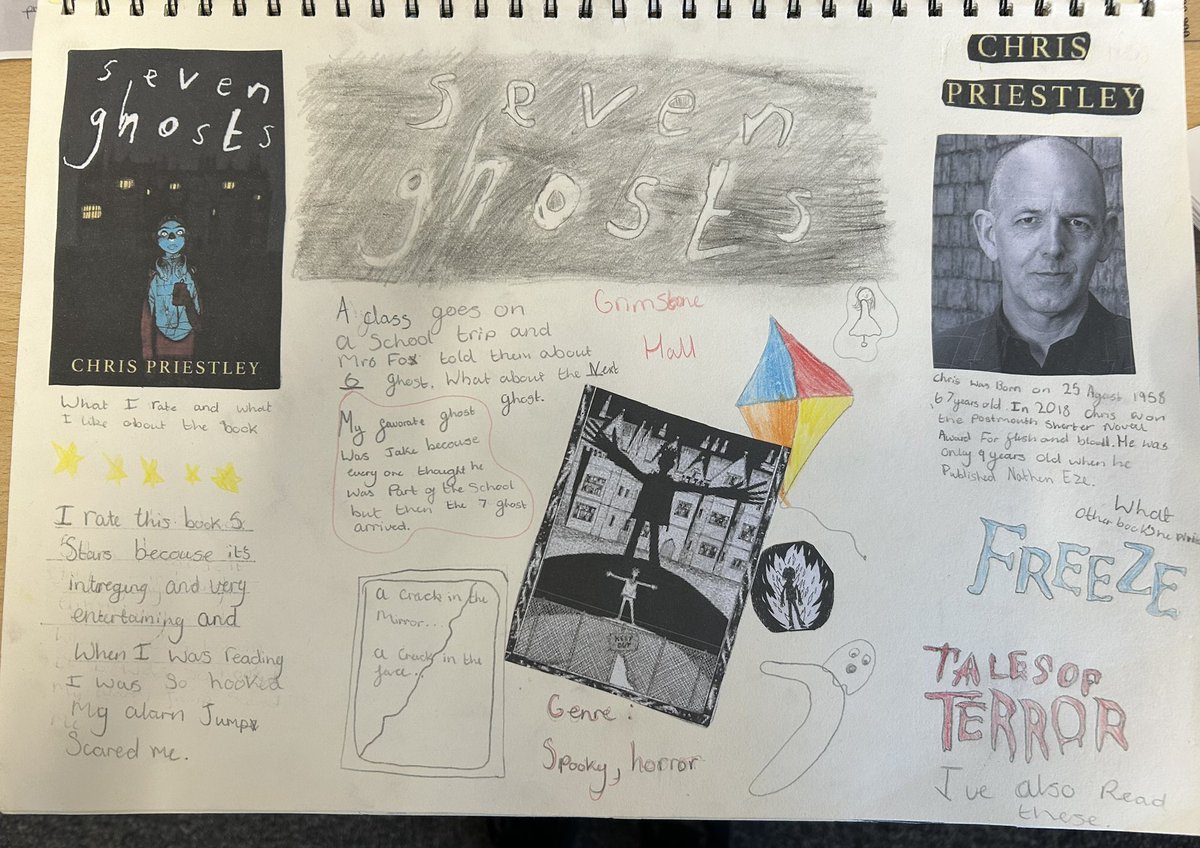 seven
ghosts
CHRIS PRIESTLEY
What I rate and what
I like about the book
I rate this book 5
Stars because it's
intreging and very
entertaining and
When I was reading
I was so hooked
My alarm Jump
Scared me.
seven
ghosts
A class goes on
a School trip and
Mrs Fox told them about
6 ghost. What about the Next
ghost.
Grimstone
Hall
My favorate ghost
Was Jake because
every one thought he
was Part of the School
but then the 7 ghost
arrived.
a Crack in the
Mirror...
a Crack in the
face...
KEEP
OUT
Genre:
Spooky, horror
CHRIS
PRIESTLEY
Chris was Born on 25 August 1958
67 years old. In 2018 Chris won
the Postmouth Shorter Noval
Award For flesh and blood. He was
Only 9 years old when he
Published Nathen Eze.
What
Other books he
FREEZE
TALES OF
TERROR
I've also Read
these.